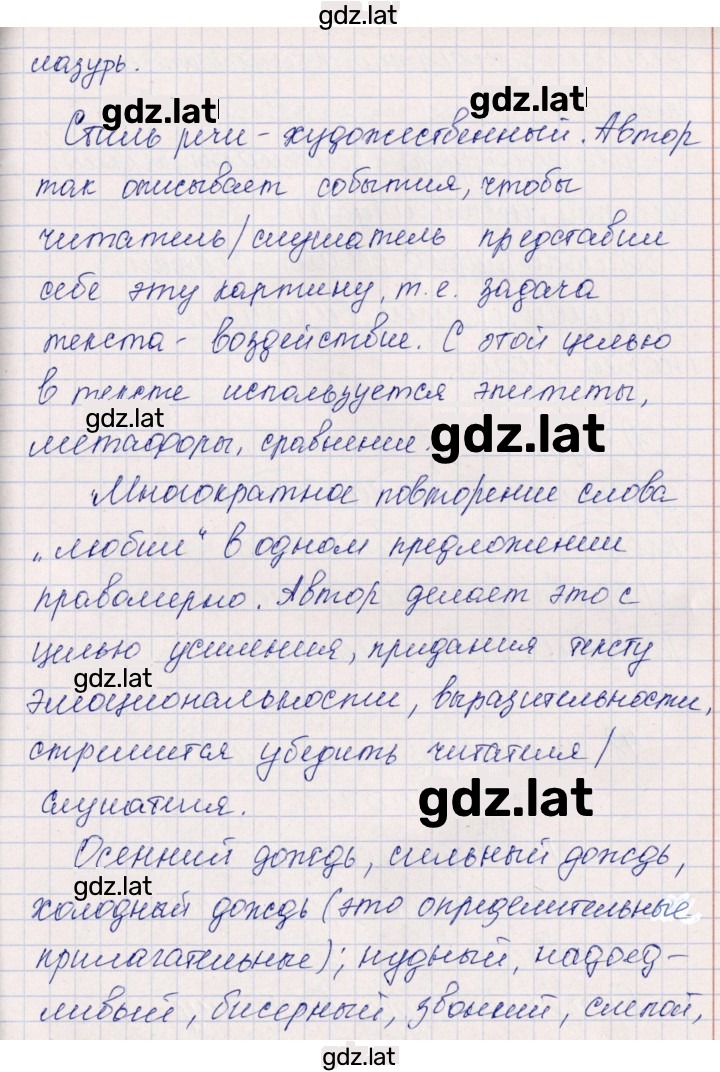 gdz.lat
лазурь.
gdz.lat
gdz.lat
Стиль речи - художественный. Автор
так описывает события, чтобы
читатель/слушатель представил
себе эту картину, т.е. задача
текста - воздействие. С этой целью
в тексте используется эпитеты,
gdz.lat
метафоры, сравнение.
gdz.lat
Многократное повторение слова
„любил“ в одном предложении
правомерно. Автор делает это с
целью усиления, придания тексту
gdz.lat
эмоциональности, выразительности,
стремится убедить читателя/
слушателя.
gdz.lat
Осенний дождь, сильный дождь,
gdz.lat
холодный дождь (это определительные
прилагательные); нудный, надоед-
ливый, бисерный, звонкий, слепой,
gdz.lat